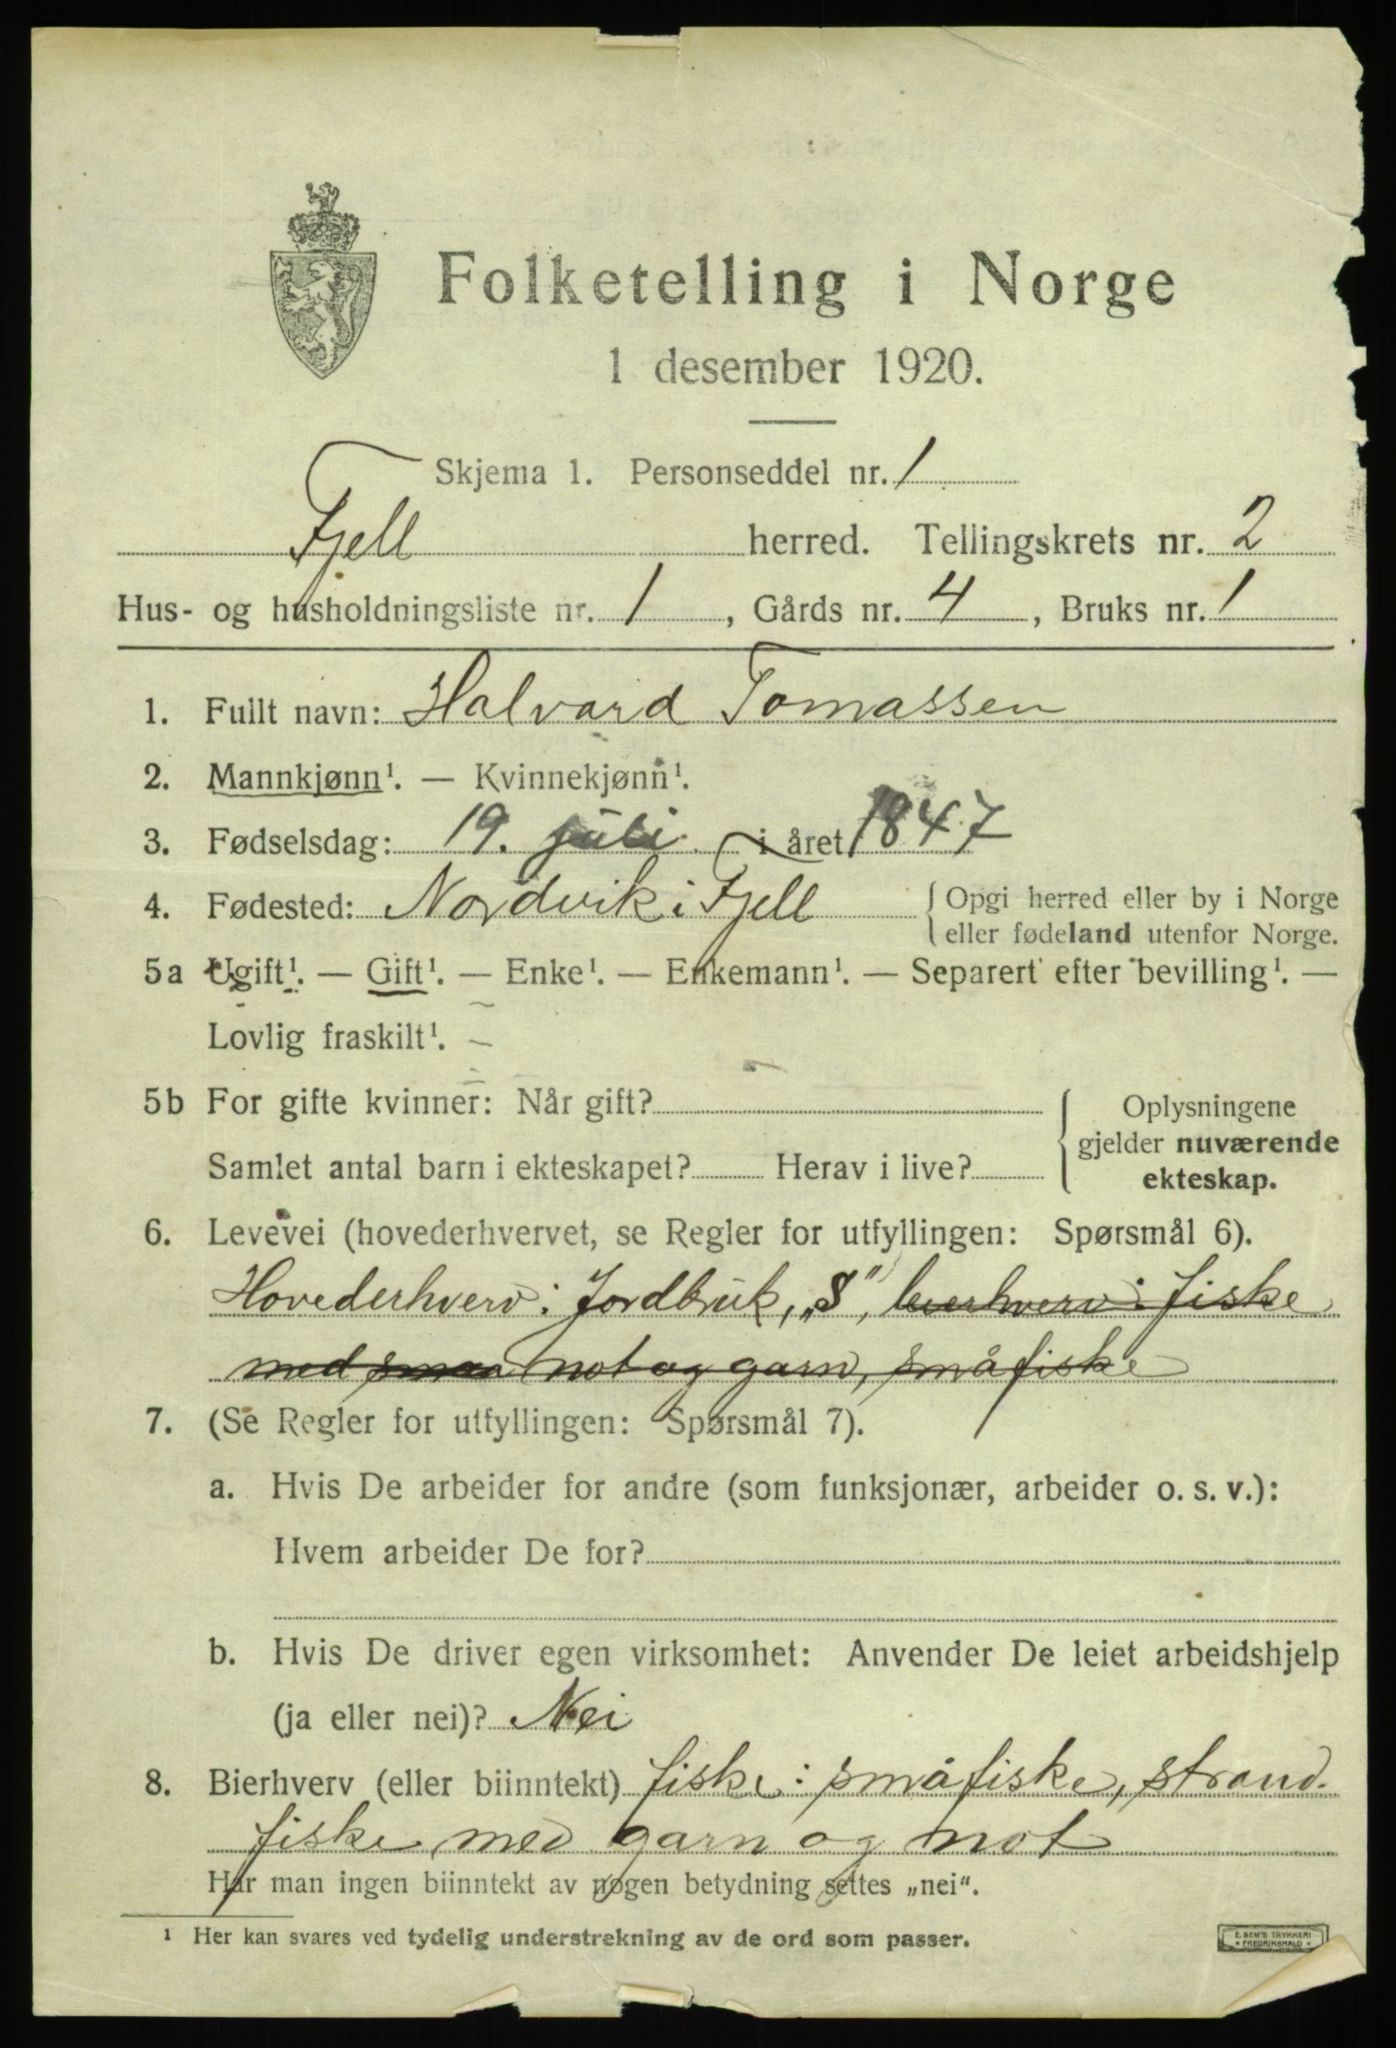 Folketelling i Norge
1 desember 1920.
Skjema 1. Personseddel nr. 1
Fjell herred. Tellingskrets nr. 2
Hus- og husholdningsliste nr. 1, Gårds nr. 4, Bruks nr. 1
1. Fullt navn: Halvard Tomassen
2. Mannkjønn¹. — Kvinnekjønn¹.
3. Fødselsdag: 19. juli i året 1847
4. Fødested: Nordvik i Fjell { Opgi herred eller by i Norge
eller fødeland utenfor Norge.
5a Ugift¹. — Gift¹. — Enke¹. — Enkemann¹. — Separert efter bevilling¹. —
Lovlig fraskilt¹.
5b For gifte kvinner: Når gift?
Samlet antal barn i ekteskapet? Herav i live?
Oplysningene
gjelder nuværende
ekteskap.
6. Levevei (hovederhvervet, se Regler for utfyllingen: Spørsmål 6).
Hovederhverv: Jordbruk, „S", bierhverv: fiske
med smaa not og garn, småfiske
7. (Se Regler for utfyllingen: Spørsmål 7).
a. Hvis De arbeider for andre (som funksjonær, arbeider o. s. v.):
Hvem arbeider De for?
b. Hvis De driver egen virksomhet: Anvender De leiet arbeidshjelp
(ja eller nei)? Nei
8. Bierhverv (eller biinntekt) fiske: småfiske, strand-
fiske med garn og not
Har man ingen biinntekt av nogen betydning settes „nei".
¹ Her kan svares ved tydelig understrekning av de ord som passer.
E. SEM'S TRYKKERI
• FREDRIKSHALD •